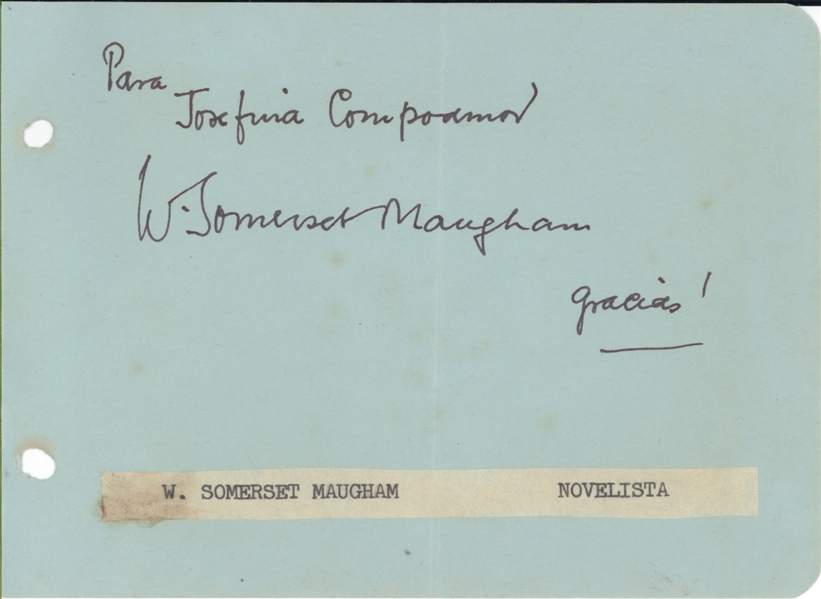 Para
Josefina Compoamor
W. Somerset Maugham
gracias!
W. SOMERSET MAUGHAM NOVELISTA